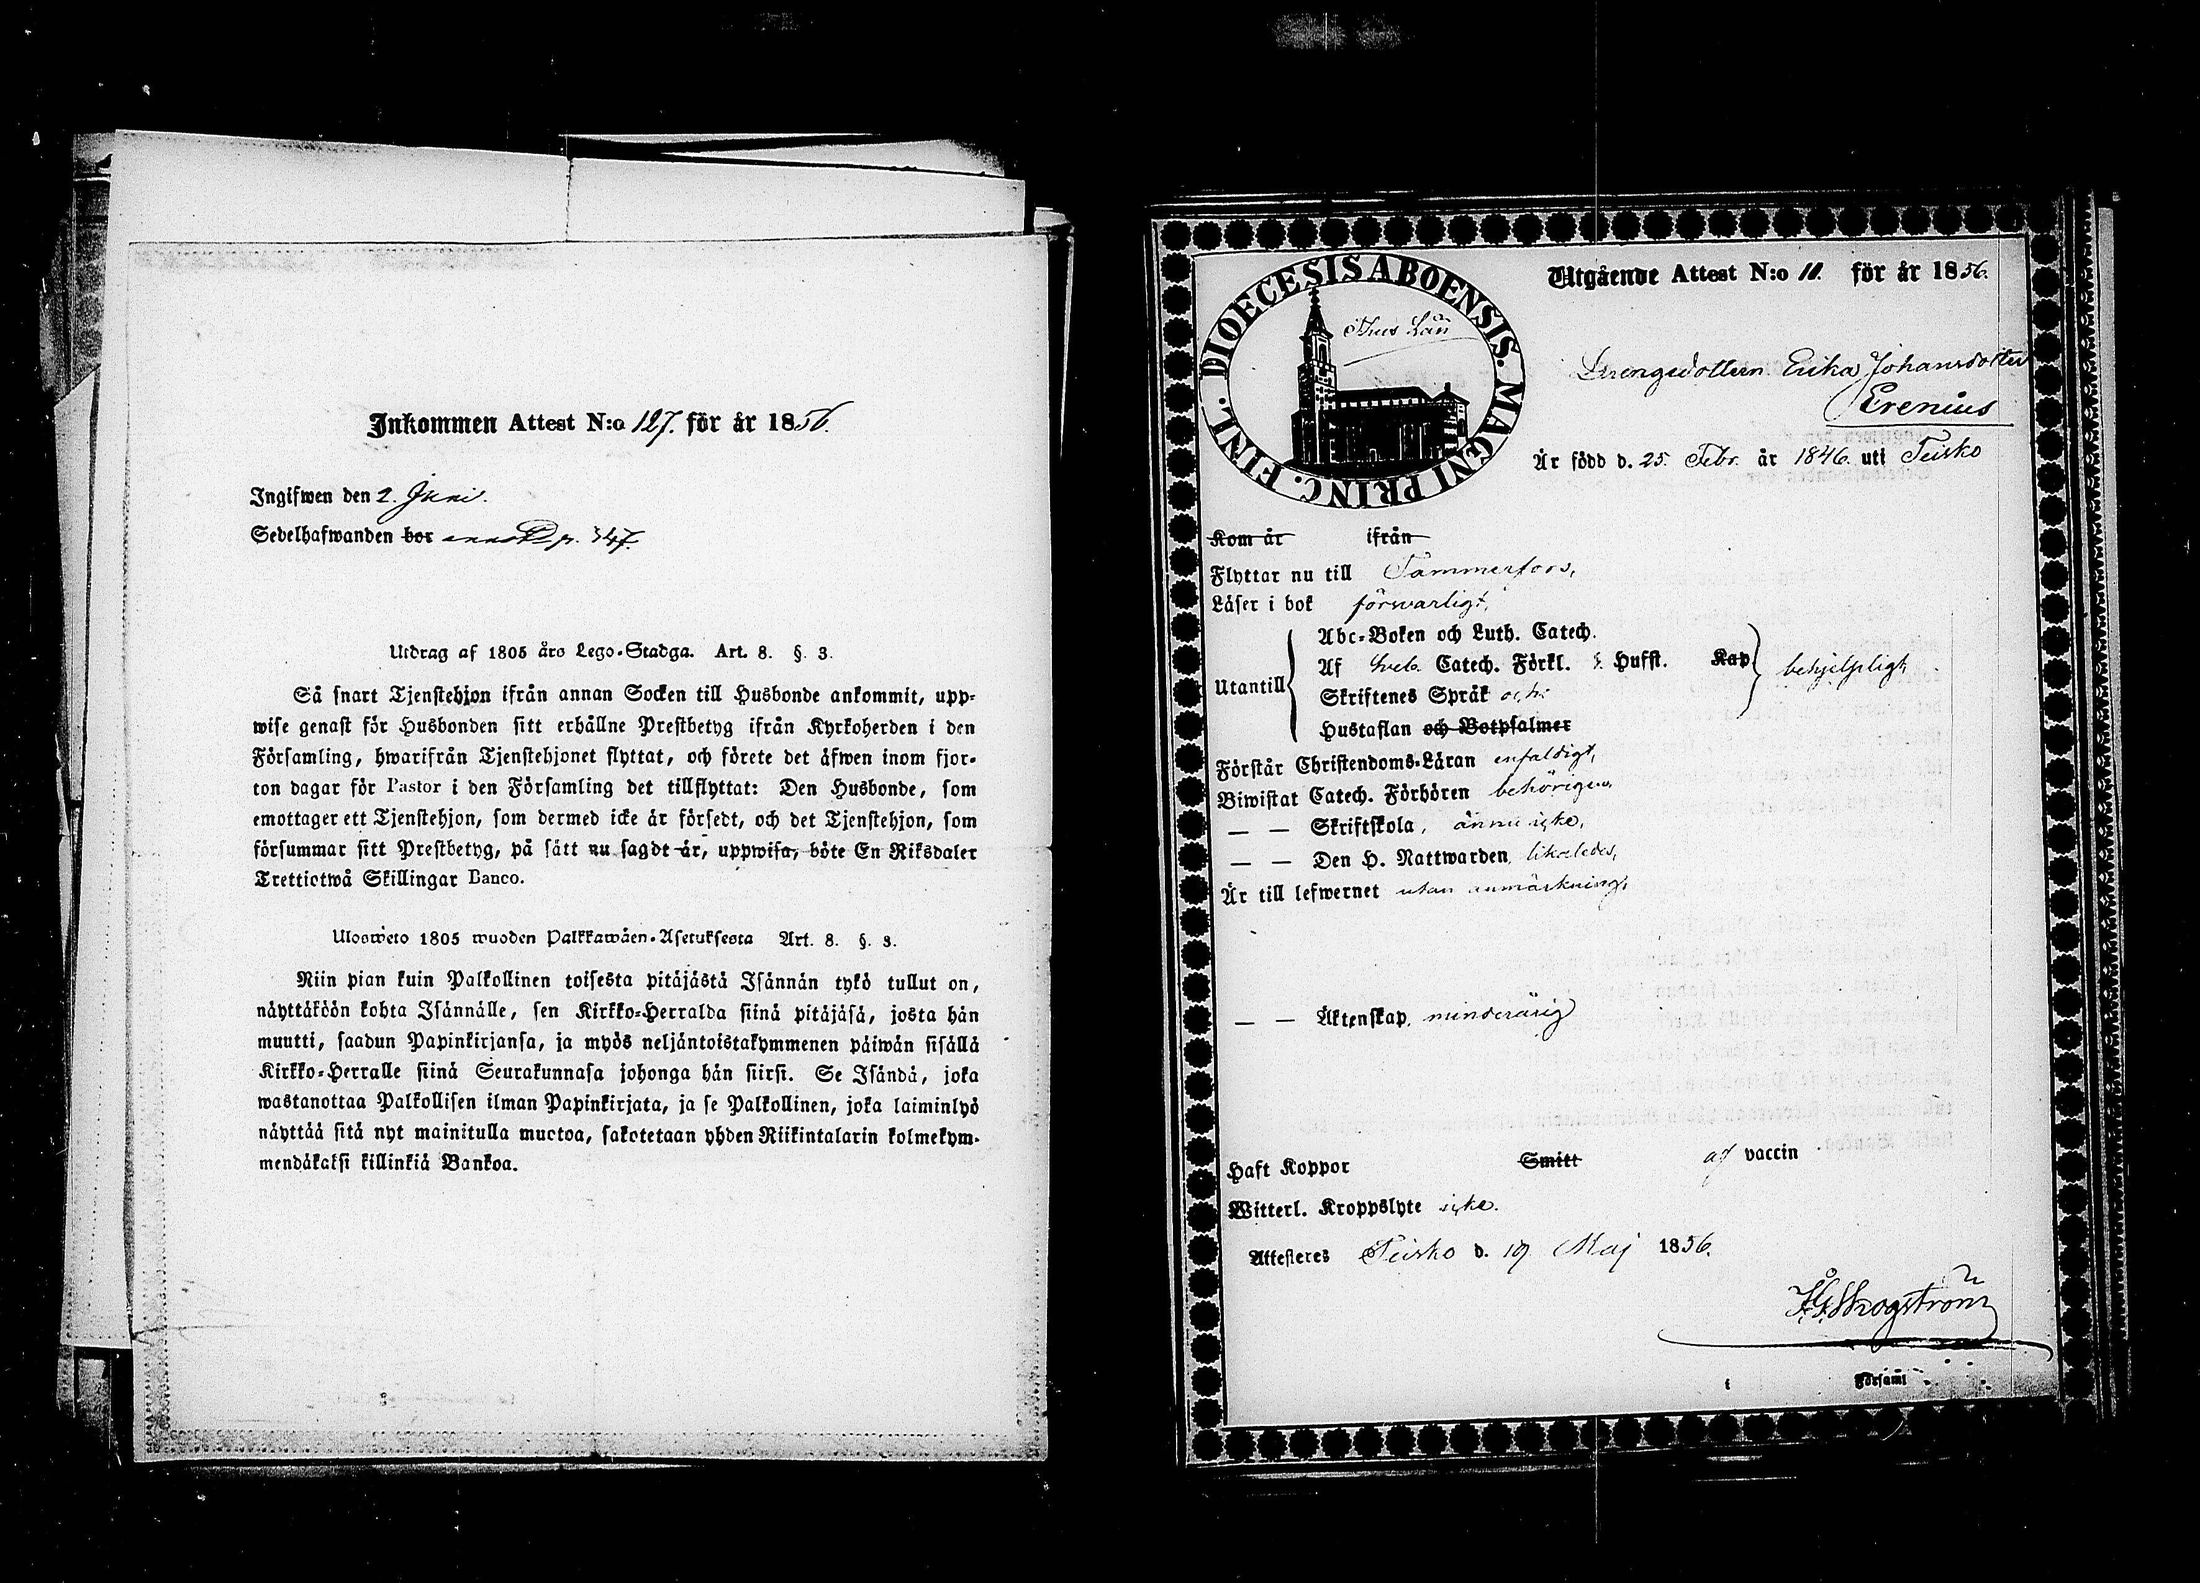 Inkommen Attest N:o 127. för år 1856.
Ingifwen den 2. Juni.
Sedelhafwanden bor p. 347.
Utdrag af 1805 års Lego-Stadga. Art. 8. §. 3.
Så snart Tjenstehjon ifrån annan Socken till Husbonde ankommit, upp-
wise genast för Husbonden sitt erhållne Prestbetyg ifrån Kyrkoherden i den
Församling, hwarifrån Tjenstehjonet flyttat, och förete det äfwen inom fjor-
ton dagar för Pastor i den Församling det tillflyttat: Den Husbonde, som
emottager ett Tjenstehjon, som dermed icke är försedt, och det Tjenstehjon, som
försummar sitt Prestbetyg, på sätt nu sagdt är, uppwisa, böte En Riksdaler
Trettiotwå Skillingar Banco.
Ulosweto 1805 wuoden Palkkawäen-Asetuksesta Art. 8. §. 3.
Niin pian kuin Palkollinen toisesta pitäjästä Isännän tykö tullut on,
näyttäköön kohta Isännälle, sen Kirkko-Herralda siinä pitäjäsä, josta hän
muutti, saadun Papinkirjansa, ja myös neljäntoistakymmenen päiwän sisällä
Kirkko-Herralle siinä Seurakunnasa johonga hän siirsi. Se Isändä, joka
wastanottaa Palkollisen ilman Papinkirjata, ja se Palkollinen, joka laiminlyö
näyttää sitä nyt mainitulla muotoa, sakotetaan yhden Riikintalarin kolmekym-
mendäkaksi killinkiä Bankoa.
DIOECESIS ABOENSIS. MAGNI PRINC. FINL.
Utgående Attest N:o 11. för år 1856.
Drengedottern Erika Johansdotter
Erenius
Är född d. 25. Febr. år 1846. uti Teisko
Kom år ifrån
Flyttar nu till Tammerfors,
Läser i bok förswarligt,
Abc-Boken och Luth. Catech.
Utantill Af Sveb. Catech. Förkl. Hufst. Kap behjelpligt
Skriftenes Språk och
Hustaflan och Botpsalmer
Förstår Christendoms-Läran enfaldigt,
Biwistat Catech. Förhören behörigen
— — Skriftskola, ännu icke,
— — Den H. Nattwarden likaledes,
Är till lefwernet utan anmärkning,
— — Äktenskap, minderårig
Haft Koppor Smitt af vaccin
Witterl. Kroppslyte icke.
Attesteres Teisko d. 19 Maj 1856.
Skogström
i Församl